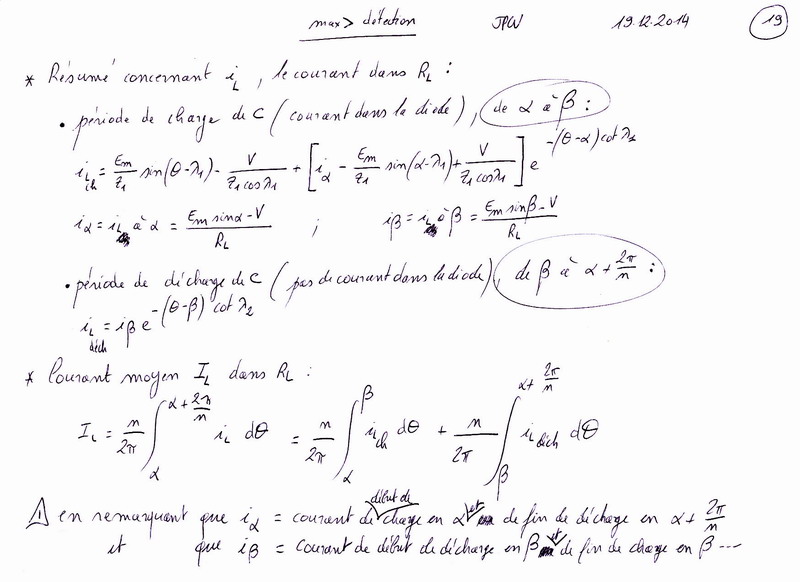 max> détection JPW 19.12.2014 19
* Résumé concernant i_L, le courant dans R_L :
• période de charge de C (courant dans la diode), de α à β :
i_L ch = Em/z1 sin(θ-λ1) - V/(z1 cosλ1) + [iα - Em/z1 sin(α-λ1) + V/(z1 cosλ1)] e^(-(θ-α) cot λ1)
iα = i_L à α = (Em sinα - V)/R_L ; iβ = i_L à β = (Em sinβ - V)/R_L
• période de décharge de C (pas de courant dans la diode), de β à α + 2π/n :
i_L déch = iβ e^(-(θ-β) cot λ2)
* Courant moyen I_L dans R_L :
I_L = n/2π ∫_α^(α + 2π/n) i_L dθ = n/2π ∫_α^β i_L ch dθ + n/2π ∫_β^(α + 2π/n) i_L déch dθ
⚠ en remarquant que iα = courant de début de charge en α et de fin de décharge en α + 2π/n
et que iβ = courant de début de décharge en β et de fin de charge en β ...